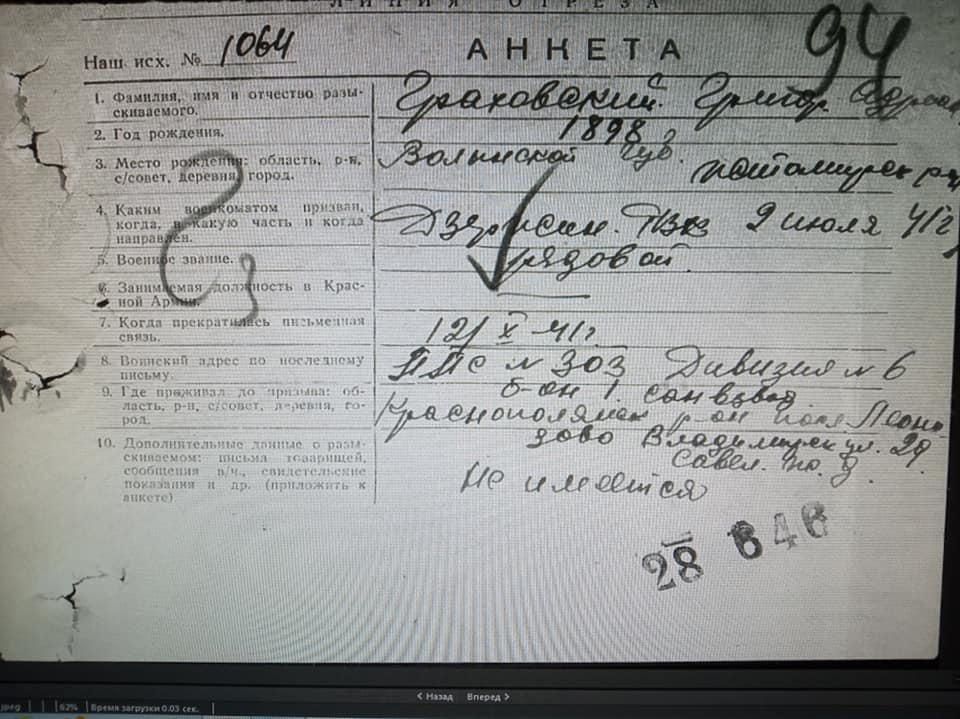 ЛИНИЯ ОТРЕЗА
Наш исх. № 1064
АНКЕТА
94
1. Фамилия, имя и отчество разы-
скиваемого.
Граховский Григор.
2. Год рождения.
1898
3. Место рождения: область, р-н,
с/совет, деревня, город.
Волынской губ.
4. Каким военкоматом призван,
когда, в какую часть и когда
направлен.
Дзержин. РВК 2 июля 41 г
5. Военное звание.
рядовой
6. Занимаемая должность в Крас-
ной Армии.
7. Когда прекратилась письменная
связь.
12/X 41 г.
8. Воинский адрес по последнему
письму.
ППС № 303 Дивизия № 6
б-он 1. сан взвод
9. Где проживал до призыва: об-
ласть, р-н, с/совет, деревня, го-
род.
Краснополянск р-он
Владимирск ул. 29
Савел.
10. Дополнительные данные о разы-
скиваемом: письма товарищей,
сообщения в/ч., свидетельские
показания и др. (приложить к
анкете)
Не имеется
28 6 46
< Назад Вперед >
jpeg 62% Время загрузки 0.03 сек.